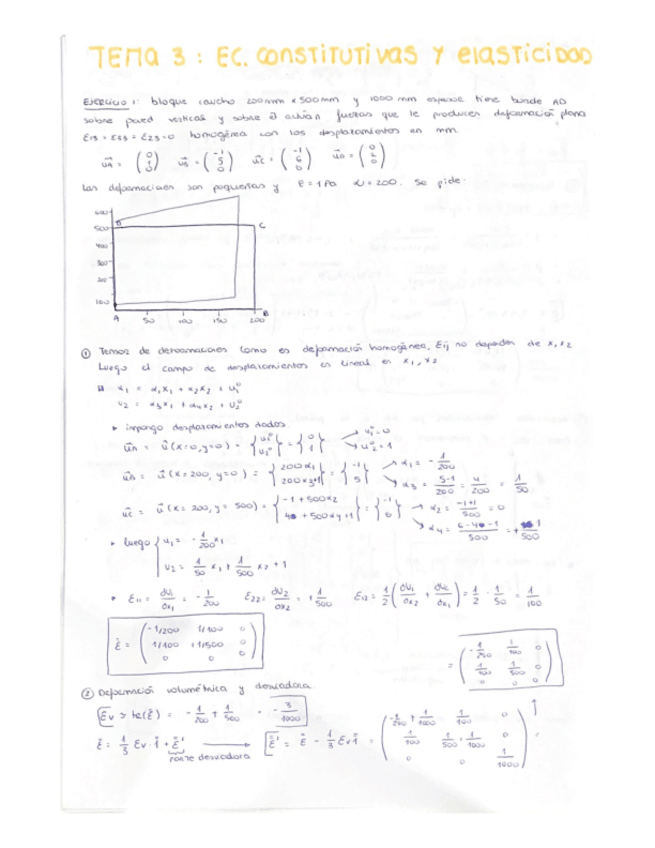 TEMA 3 : EC. CONSTITUTIVAS Y ELASTICIDAD
EJERCICIO 1: bloque caucho 200mm x 500mm y 1000 mm espesor tiene borde AD
sobre pared vertical y sobre él actúan fuerzas que le producen deformación plana
ε13 = ε33 = ε23 = 0 homogénea con los desplazamientos en mm.
uA = (0 1 0) uB = (-1 5 0) uC = (-1 6 0) uD = (0 2 0)
Las deformaciones son pequeñas y E = 1 Pa = 200. Se pide:
600
500 C
400
300
200
100
A 50 100 150 200 B
① Tensor de deformaciones Como es deformación homogénea, Eij no depende de x1, x2
Luego el campo de desplazamientos es lineal en x1, x2
u1 = α1x1 + α2x2 + u1°
u2 = α3x1 + α4x2 + u2°
▸ impongo desplazamientos dados.
uA = u(x=0, y=0) = {u1° u2°} = {0 1} → u1° = 0 → u2° = 1
uB = u(x=200, y=0) = {200α1 200α3+1} = {-1 5} → α1 = -1/200 → α3 = 5-1/200 = 4/200 = 1/50
uC = u(x=200, y=500) = {-1+500α2 4 + 500α4+1} = {-1 6} → α2 = -1+1/500 = 0 → α4 = 6-4-1/500 = +1/500
▸ Luego { u1 = -1/200 x1
u2 = 1/50 x1 + 1/500 x2 + 1
▸ ε11 = ∂u1/∂x1 = -1/200 ε22 = ∂u2/∂x2 = +1/500 ε12 = 1/2 (∂u1/∂x2 + ∂u2/∂x1) = 1/2 · 1/50 = 1/100
ε = (-1/200 1/100 0
1/100 +1/500 0
0 0 0)
② Deformación volumétrica y desviadora.
Ev = tr(ε) = -1/200 + 1/500 = -3/1000
ε = 1/3 Ev·1 + ε' → ε' = ε - 1/3 Ev 1 = (-1/200 + 1/1000 1/100 0
1/100 1/500 + 1/1000 0
0 0 1/1000)
parte desviadora